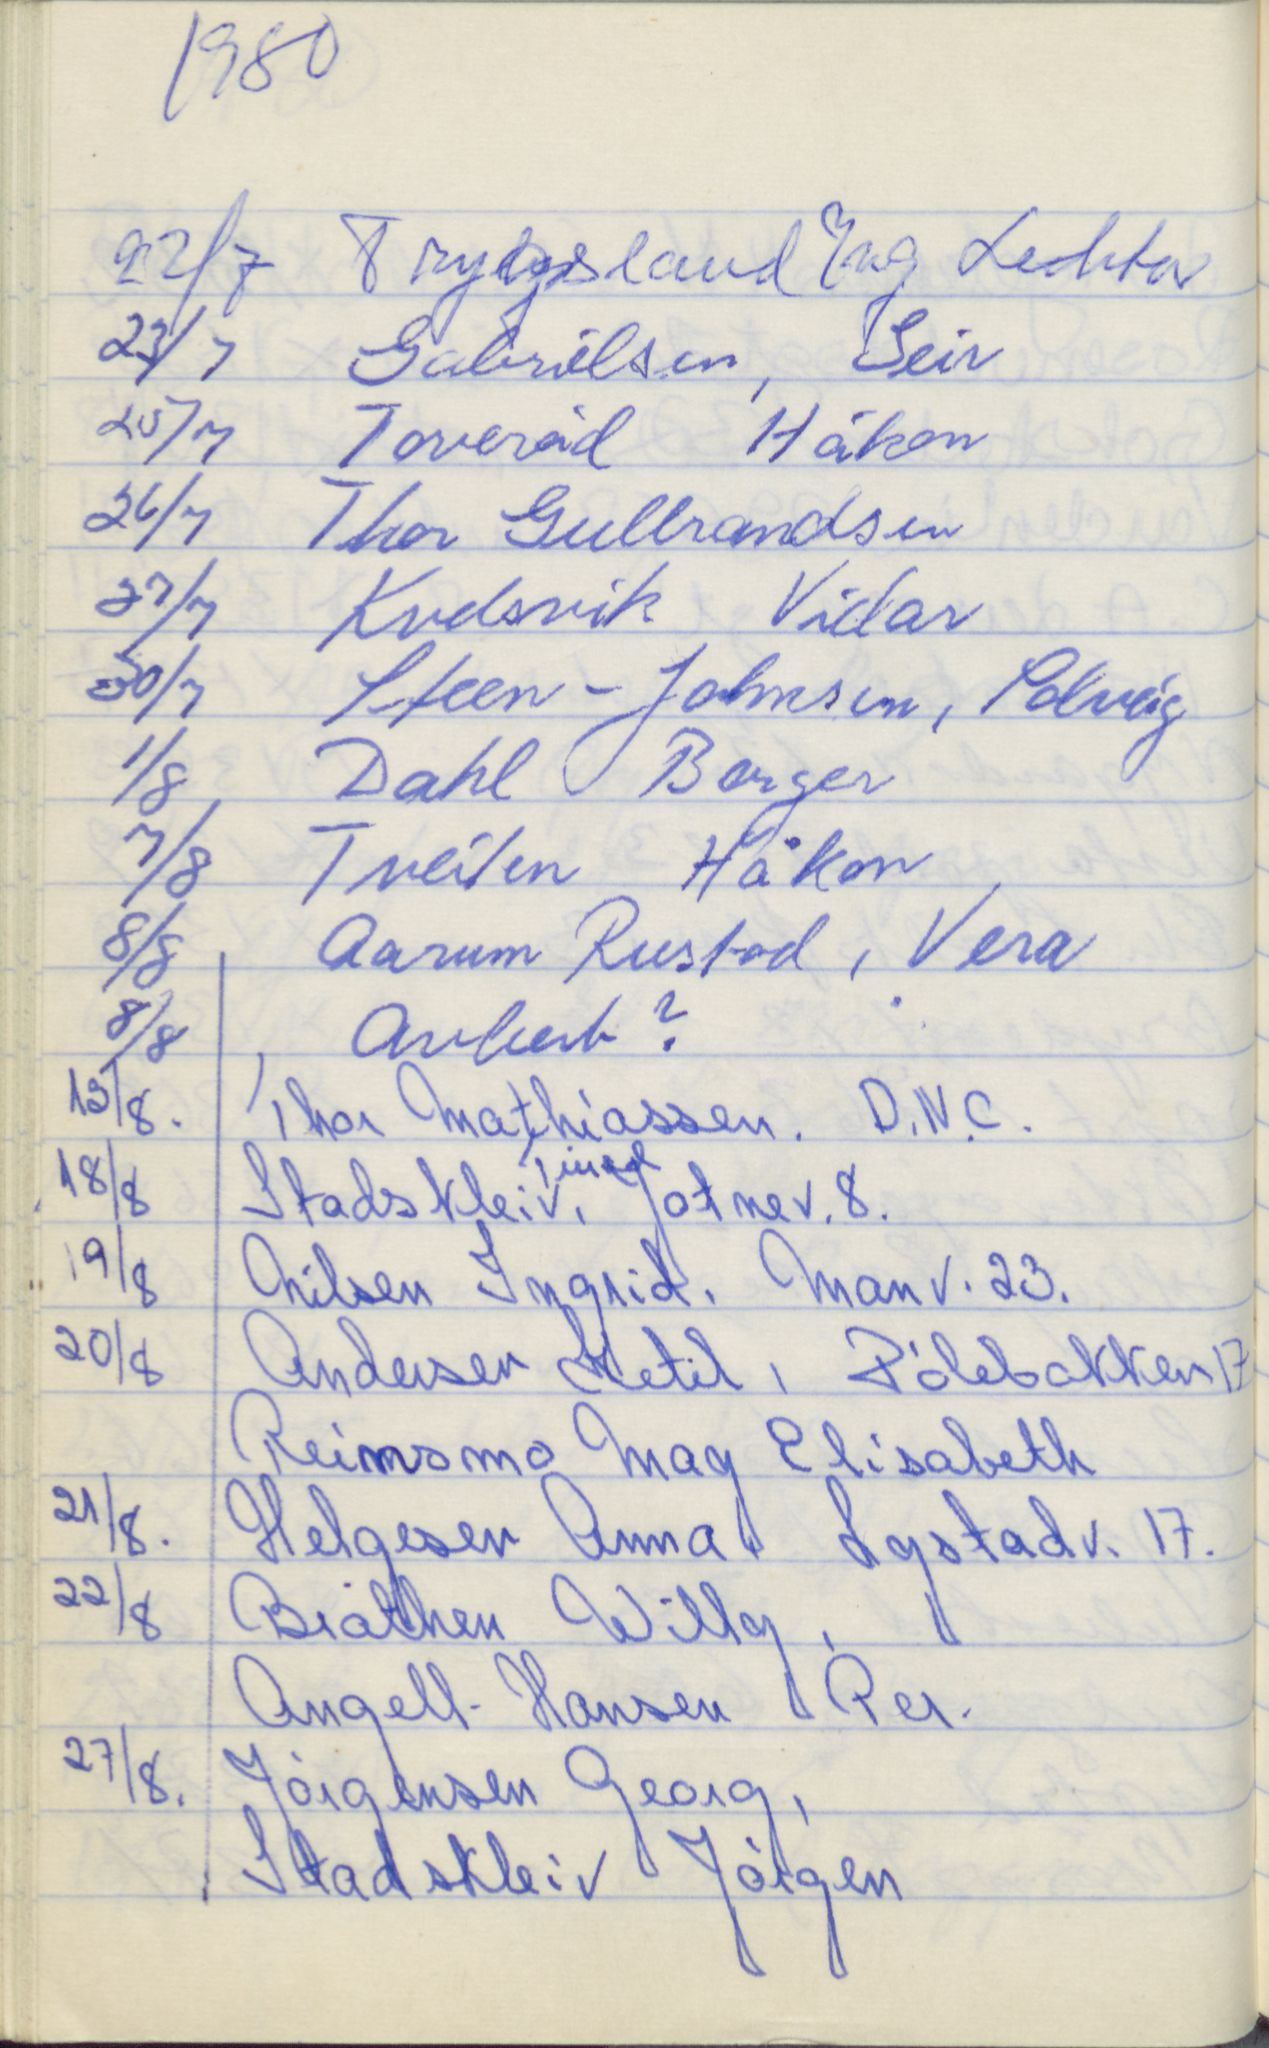 1980
22/7 Trygsland Lektor
23/7 Gabrielsen, Geir
25/7 Toveråd Håkon
26/7 Thor Gulbrandsen
27/7 Kvdsvik Vidar
30/7 Steen-Johnsen, Solveig
1/8 Dahl Borger
7/8 Tveiten Håkon
8/8 Aarum Rustad, Vera
8/8 ?
13/8. Thor Mathiassen. D.N.C.
18/8 Stadskleiv, Jotnev. 8.
19/8 Nilsen Ingrid. Manv. 23.
20/8 Andersen Ketil, Pålebakken 17
Reimsmo May Elisabeth
21/8. Helgesen Anna Lystadv. 17.
22/8 Bråthen Willy,
Angell-Hansen Per.
27/8. Jörgensen Georg,
Stadskleiv Jörgen